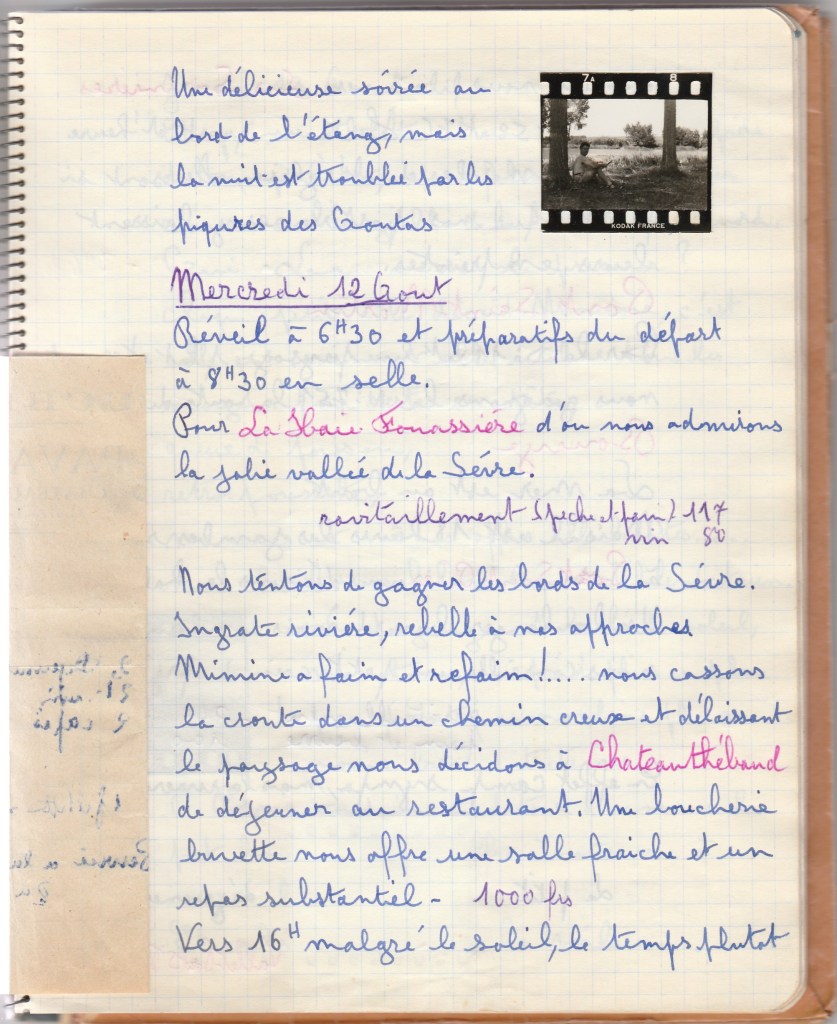 Une délicieuse soirée au
bord de l'étang, mais
la nuit est troublée par les
piqures des Aoutas
7A 8
KODAK FRANCE
Mercredi 12 Aout
Réveil à 6H30 et préparatifs du départ
à 8H30 en selle.
Pour La Haie Fouassiére d'ou nous admirons
la jolie vallée de la Sévre.
ravitaillement (peche et pain) 117
vin 80
Nous tentons de gagner les bords de la Sévre.
Ingrate riviére, rebelle à nos approches
Mimine a faim et refaim!.... nous cassons
la croute dans un chemin creux et, délaissant
le paysage nous décidons à Chateauthébaud
de déjeuner au restaurant. Une boucherie
buvette nous offre une salle fraiche et un
repas substantiel - 1000 frs
Vers 16H malgré le soleil, le temps plutot